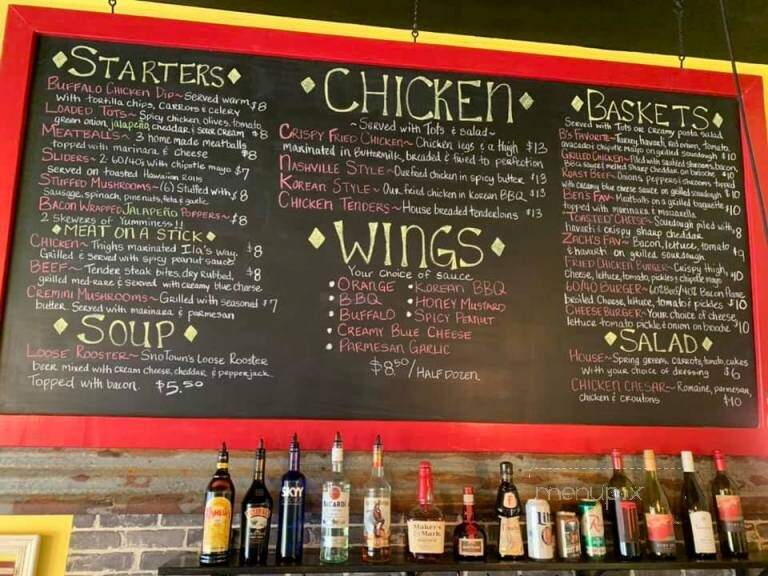 STARTERS
BUFFALO CHICKEN DIP~ SERVED WARM $8
WITH TORTILLA CHIPS, CARROTS & CELERY
LOADED TOTS~ Spicy chicken, olives, tomato,
green onion, jalapeño, cheddar & sour cream $8
MEATBALLS~ 3 home made meatballs
topped with marinara & cheese $8
SLIDERS~ 2 60/40s with chipotle mayo $7
served on toasted Hawaiian Rolls
STUFFED MUSHROOMS~(6) Stuffed with $8
Sausage, spinach, pine nuts, feta & garlic
BACON WRAPPED JALAPEÑO POPPERS~ $8
2 skewers of Yumminess!!
MEAT ON A STICK
CHICKEN~ Thighs marinated Ila's way. $8
Grilled & served with spicy peanut sauce
BEEF~ Tender steak bites, dry rubbed, $8
grilled med-rare & served with creamy blue cheese
CREMINI MUSHROOMS~ Grilled with seasoned $7
butter. Served with marinara & parmesan
SOUP
LOOSE ROOSTER~ SnoTown's Loose Rooster
beer mixed with cream cheese, cheddar & pepperjack.
Topped with bacon. $5.50
CHICKEN
~Served with Tots & salad~
CRISPY FRIED CHICKEN~ Chicken legs & a thigh $13
marinated in Buttermilk, breaded & fried to perfection
NASHVILLE STYLE~ Our fried chicken in spicy butter $13
KOREAN STYLE~ Our fried chicken in Korean BBQ $13
CHICKEN TENDERS~ House breaded tenderloins $13
WINGS
Your choice of sauce
• ORANGE • KOREAN BBQ
• BBQ • HONEY MUSTARD
• BUFFALO • SPICY PEANUT
• CREAMY BLUE CHEESE
• PARMESAN GARLIC
$8.50/HALF DOZEN
BASKETS
Served with Tots or creamy pasta salad
B's FAVORITE~ Turkey, havarti, red onion, tomato,
avocado & chipotle mayo on grilled sourdough $10
GRILLED CHICKEN~ Filled with sautéed
melted sharp cheddar on brioche $10
ROAST BEEF~ Onions, peppers & mushrooms topped
with creamy blue cheese sauce on grilled sourdough $10
BEN'S FAV~ Meatballs on a grilled baguette
topped with marinara & mozzarella $10
"TOASTED" CHEESE~ Sourdough piled with
havarti & crispy sharp cheddar $8
ZACH'S FAV~ Bacon, lettuce, tomato
& havarti on grilled sourdough $9
FRIED CHICKEN BURGER~ Crispy thigh, $10
cheese, lettuce, tomato, pickles & chipotle mayo
60/40 BURGER~ 60% Beef/40% Bacon flame
broiled Cheese, lettuce, tomato & pickles $10
CHEESEBURGER~ Your choice of cheese,
lettuce tomato pickle & onion on brioche $10
SALAD
HOUSE~ Spring greens, carrots, tomato, cukes
With your choice of dressing $6
CHICKEN CAESAR~ Romaine, parmesan,
chicken & croutons $10
menupix
SKYY
BACARDI
Maker's
Mark